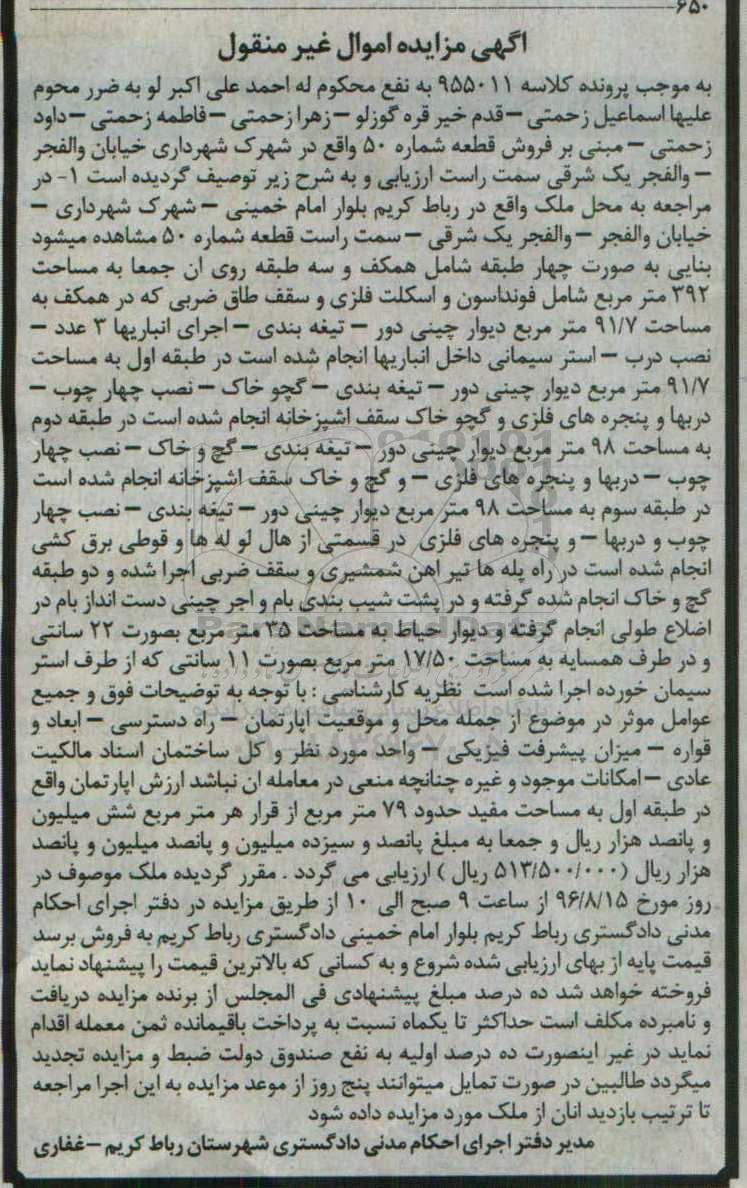 ۶۵۰
آگهی مزایده اموال غیر منقول
به موجب پرونده کلاسه ۹۵۵۰۱۱ به نفع محکوم له احمد علی اکبر لو به ضرر محوم
علیها اسماعیل زحمتی – قدم خیر قره گوزلو – زهرا زحمتی – فاطمه زحمتی – داود
زحمتی – مبنی بر فروش قطعه شماره ۵۰ واقع در شهرک شهرداری خیابان والفجر
– والفجر یک شرقی سمت راست ارزیابی و به شرح زیر توصیف گردیده است ۱- در
مراجعه به محل ملک واقع در رباط کریم بلوار امام خمینی – شهرک شهرداری –
خیابان والفجر – والفجر یک شرقی – سمت راست قطعه شماره ۵۰ مشاهده میشود
بنایی به صورت چهار طبقه شامل همکف و سه طبقه روی ان جمعا به مساحت
۳۹۲ متر مربع شامل فونداسون و اسکلت فلزی و سقف طاق ضربی که در همکف به
مساحت ۹۱/۷ متر مربع دیوار چینی دور – تیغه بندی – اجرای انباریها ۳ عدد –
نصب درب – استر سیمانی داخل انباریها انجام شده است در طبقه اول به مساحت
۹۱/۷ متر مربع دیوار چینی دور – تیغه بندی – گچو خاک – نصب چهار چوب –
دربها و پنجره های فلزی و گچو خاک سقف اشپزخانه انجام شده است در طبقه دوم
به مساحت ۹۸ متر مربع دیوار چینی دور – تیغه بندی – گچ و خاک – نصب چهار
چوب – دربها و پنجره های فلزی – و گچ و خاک سقف اشپزخانه انجام شده است
در طبقه سوم به مساحت ۹۸ متر مربع دیوار چینی دور – تیغه بندی – نصب چهار
چوب و دربها – و پنجره های فلزی در قسمتی از هال لو له ها و قوطی برق کشی
انجام شده است در راه پله ها تیر اهن شمشیری و سقف ضربی اجرا شده و دو طبقه
گچ و خاک انجام شده گرفته و در پشت شیب بندی بام و اجر چینی دست انداز بام در
اضلاع طولی انجام گرفته و دیوار حیاط به مساحت ۳۵ متر مربع بصورت ۲۲ سانتی
و در طرف همسایه به مساحت ۱۷/۵۰ متر مربع بصورت ۱۱ سانتی که از طرف استر
سیمان خورده اجرا شده است نظریه کارشناسی : با توجه به توضیحات فوق و جمیع
عوامل موثر در موضوع از جمله محل و موقعیت اپارتمان – راه دسترسی – ابعاد و
قواره – میزان پیشرفت فیزیکی – واحد مورد نظر و کل ساختمان اسناد مالکیت
عادی – امکانات موجود و غیره چنانچه منعی در معامله ان نباشد ارزش اپارتمان واقع
در طبقه اول به مساحت مفید حدود ۷۹ متر مربع از قرار هر متر مربع شش میلیون
و پانصد هزار ریال و جمعا به مبلغ پانصد و سیزده میلیون و پانصد میلیون و پانصد
هزار ریال (۵۱۳/۵۰۰/۰۰۰ ریال ) ارزیابی می گردد . مقرر گردیده ملک موصوف در
روز مورخ ۹۶/۸/۱۵ از ساعت ۹ صبح الی ۱۰ از طریق مزایده در دفتر اجرای احکام
مدنی دادگستری رباط کریم بلوار امام خمینی دادگستری رباط کریم به فروش برسد
قیمت پایه از بهای ارزیابی شده شروع و به کسانی که بالاترین قیمت را پیشنهاد نماید
فروخته خواهد شد ده درصد مبلغ پیشنهادی فی المجلس از برنده مزایده دریافت
و نامبرده مکلف است حداکثر تا یکماه نسبت به پرداخت باقیمانده ثمن معمله اقدام
نماید در غیر اینصورت ده درصد اولیه به نفع صندوق دولت ضبط و مزایده تجدید
میگردد طالبین در صورت تمایل میتوانند پنج روز از موعد مزایده به این اجرا مراجعه
تا ترتیب بازدید انان از ملک مورد مزایده داده شود
مدیر دفتر اجرای احکام مدنی دادگستری شهرستان رباط کریم – غفاری